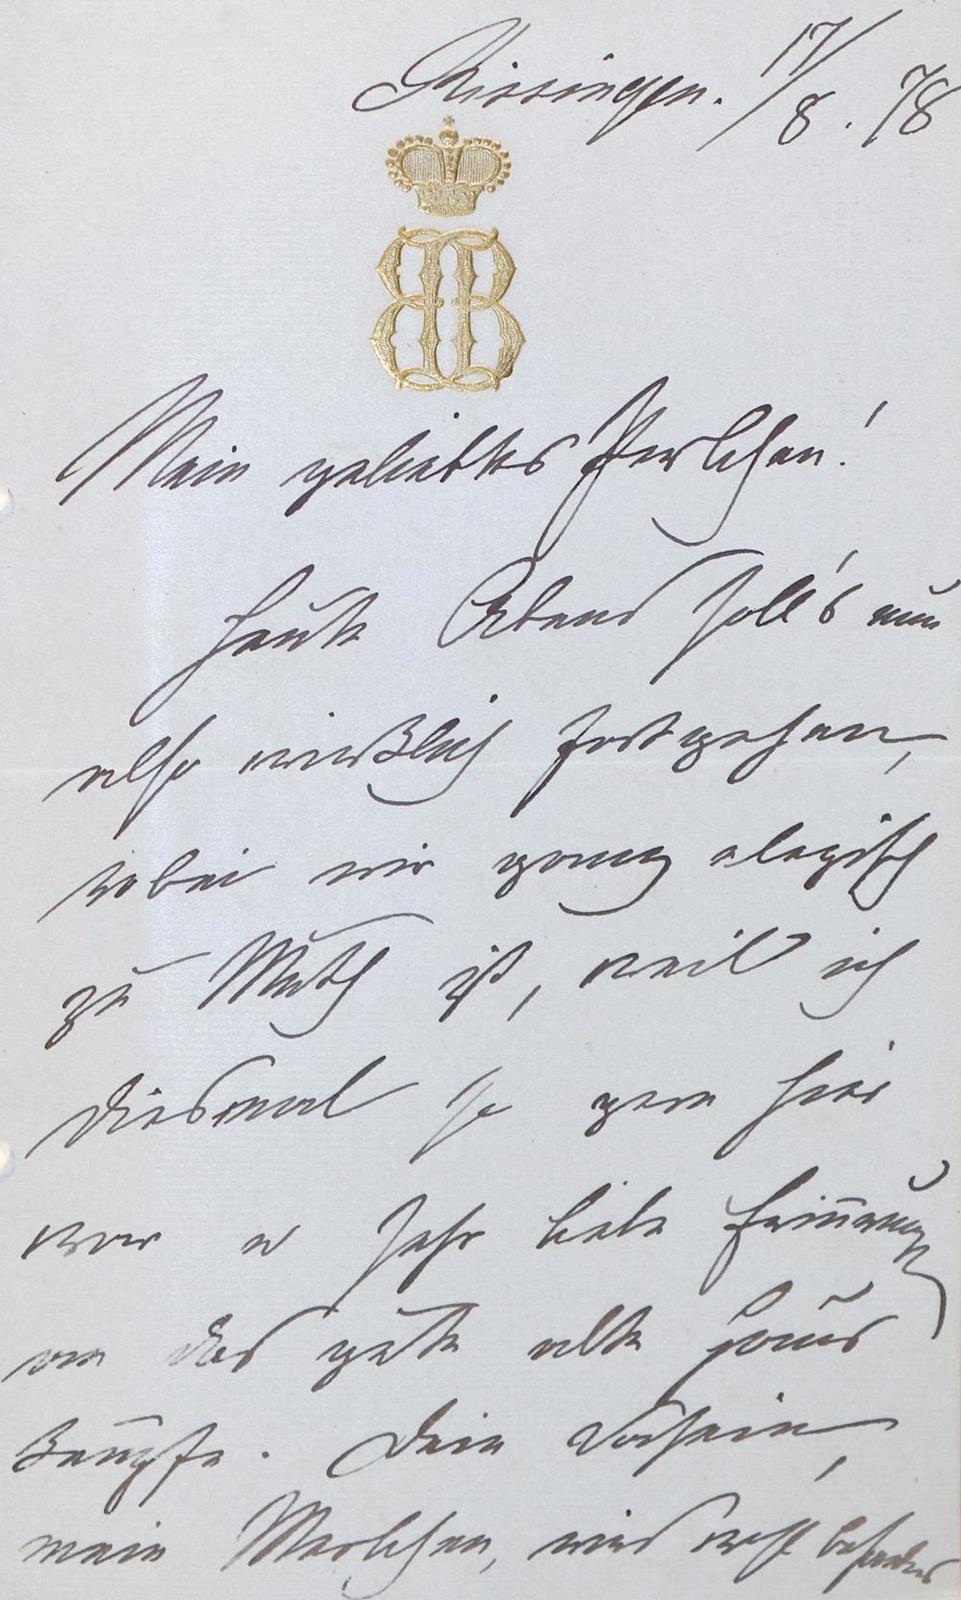 Kissingen. 17/8. 78
BB
Mein geliebtes Perlchen!
Heute Abend soll's nun
also wirklich fortgehen,
wobei mir ganz elegisch
zu Muth ist, weil ich
diesmal so gern hier
war u Ihr liebe Erinnerung
an das gute alte Haus
knüpfe. Dein Dasein,
mein Marlchen, wird